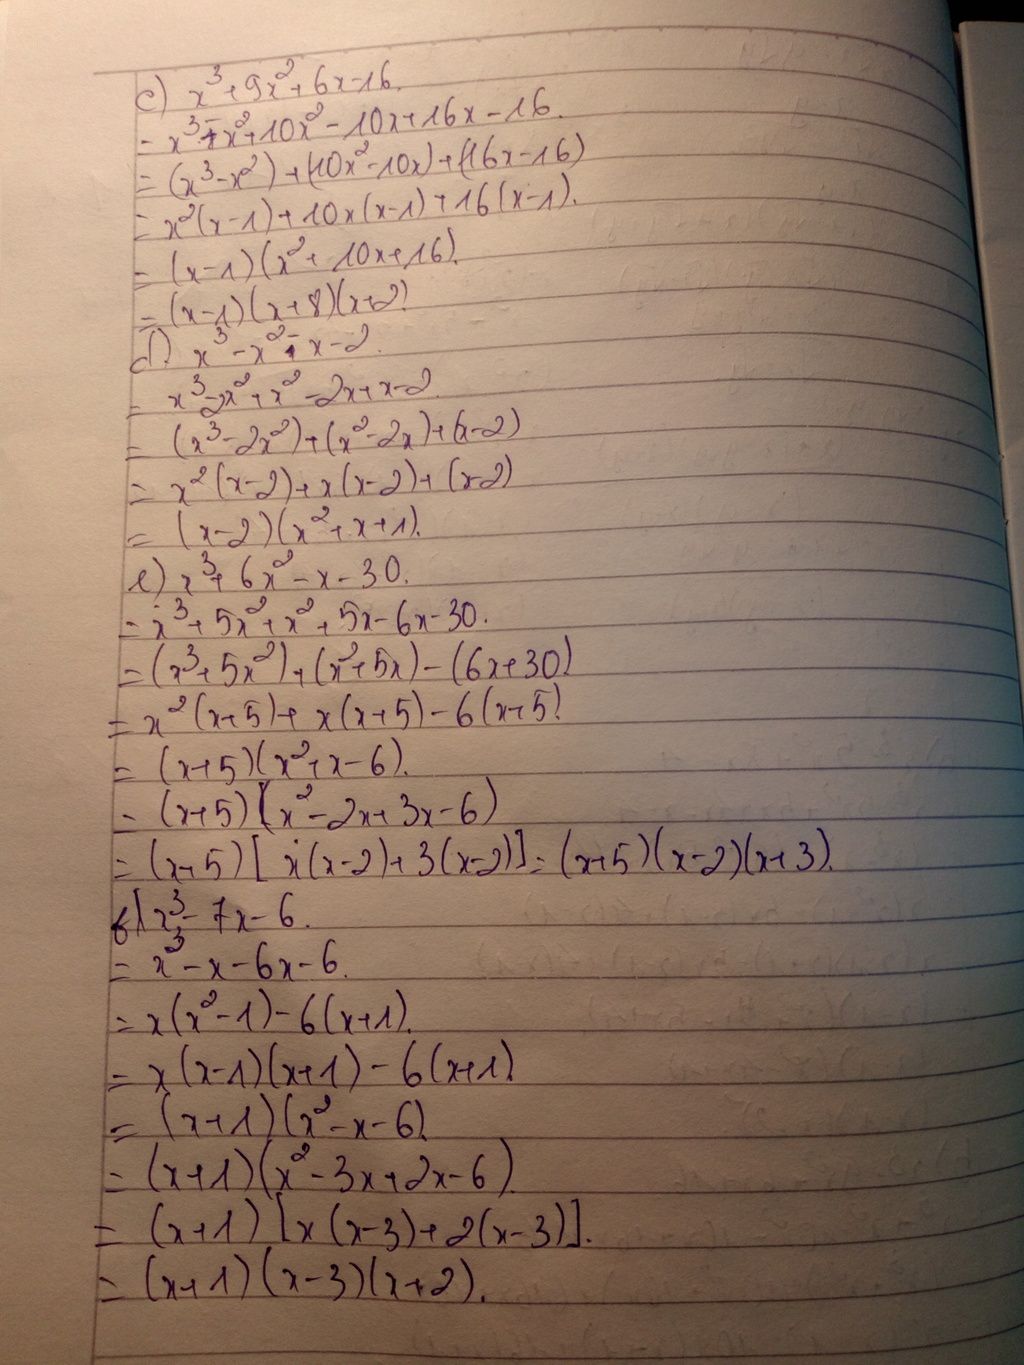 c) x³+9x²+6x-16.
= x³-x²+10x²-10x+16x-16.
= (x³-x²)+(10x²-10x)+(16x-16)
= x²(x-1)+10x(x-1)+16(x-1).
= (x-1)(x²+10x+16).
= (x-1)(x+8)(x+2)
d). x³-x²-x-2.
= x³-2x²+x²-2x+x-2.
= (x³-2x²)+(x²-2x)+(x-2)
= x²(x-2)+x(x-2)+(x-2)
= (x-2)(x²+x+1).
e) x³+6x²-x-30.
= x³+5x²+x²+5x-6x-30.
= (x³+5x²)+(x²+5x)-(6x+30)
= x²(x+5)+x(x+5)-6(x+5)
= (x+5)(x²+x-6).
= (x+5)(x²-2x+3x-6)
= (x+5)[x(x-2)+3(x-2)]=(x+5)(x-2)(x+3).
f) x³-7x-6.
= x³-x-6x-6.
= x(x²-1)-6(x+1).
= x(x-1)(x+1)-6(x+1)
= (x+1)(x²-x-6)
= (x+1)(x²-3x+2x-6).
= (x+1)[x(x-3)+2(x-3)].
= (x+1)(x-3)(x+2).